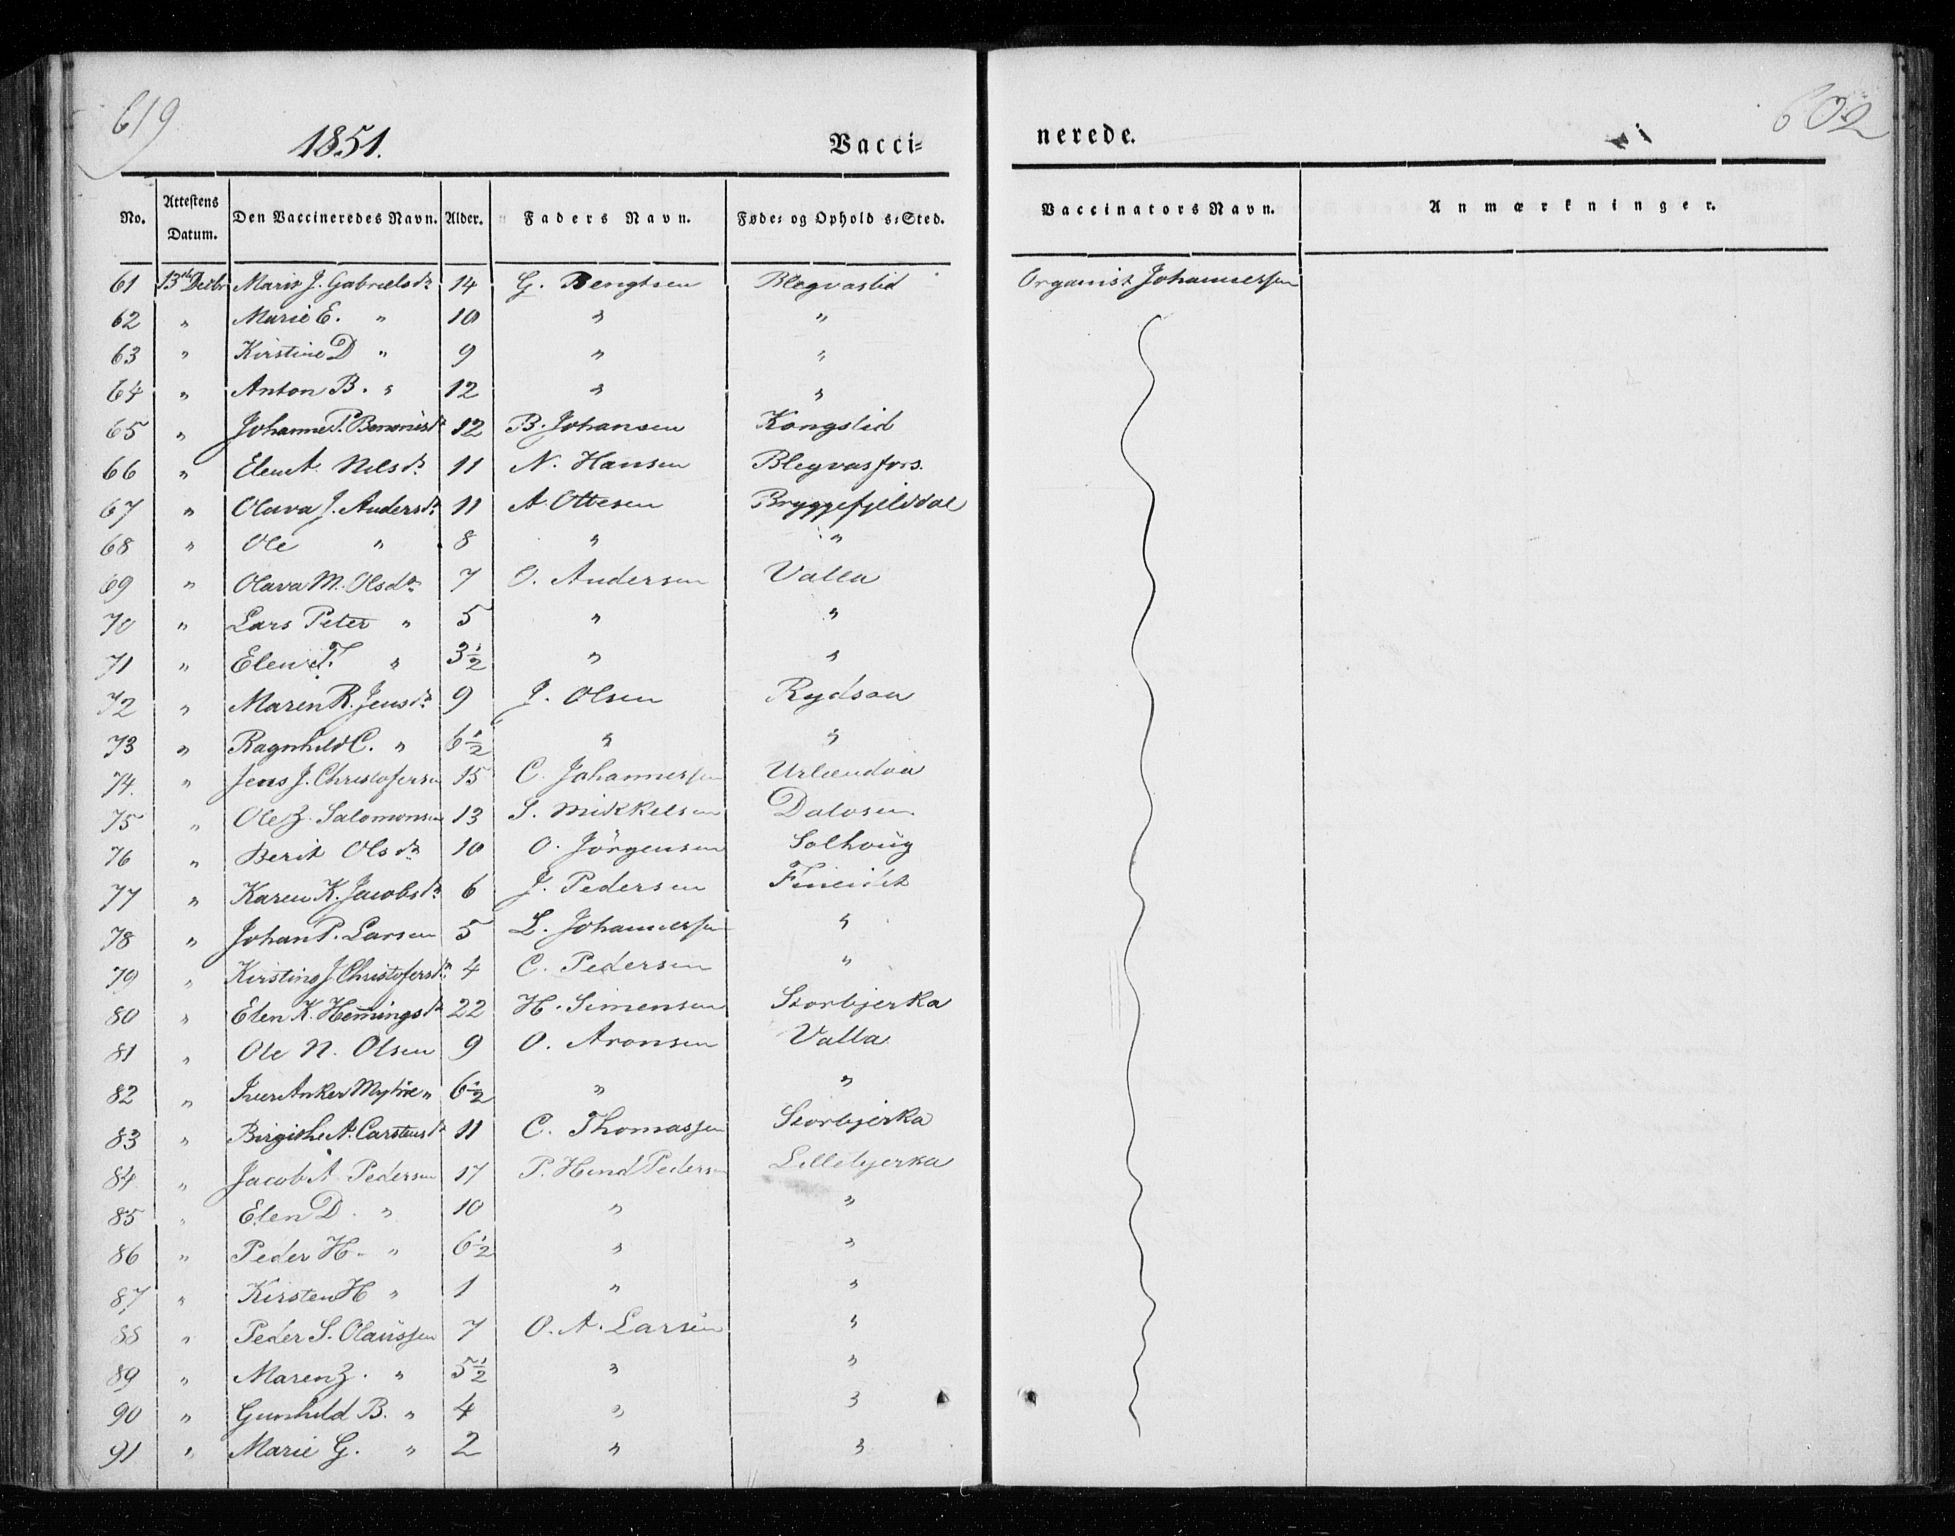 619
602
1851.
Vacci=
nerede.
No. Attestens Datum. Den Vaccineredes Navn. Alder. Faders Navn. Føde= og Opholds=Sted. Vaccinators Navn. Anmærkninger.
61 13de Decbr Maris J. Gabrielsdr 14 G. Bengtsen Blegvaslid Organist Johannessen
62 " Marie E. " 10 " "
63 " Kirstine D " 9 " "
64 " Anton B. " 12 " "
65 " Johanne P. Benonisdr 12 B. Johansen Kongslid
66 " Elen A. Nilsdr 11 N. Hansen Blegvasfors.
67 " Olava J. Andersdr 11 A. Ottesen Bryggefjelddal
68 " Ole " 8 " "
69 " Olava M. Olsdr 7 O. Andersen Valla
70 " Lars Peter " 5 " "
71 " Elen T. " 3½ " "
72 " Maren R. Jensdr 9 J. Olsen Rydsaa
73 " Ragnhild C. " 6½ " "
74. " Jens J. Christofersen 15 C. Johannessen Urlandaa
75 " Ole Z. Salomonsen 13 S. Mikkelsen Dalosen
76 " Berit Olsdr 10 O. Jörgensen Solhoug
77 " Karen K. Jacobsdr 6 J. Pedersen Fineidet
78 " Johan P. Larsen 5 L. Johannessen "
79 " Kirstine J. Christofersdr 4 C. Pedersen "
80 " Elen K. Hemingsdr 22 H. Simensen Storbjerka
81 " Ole N. Olsen 9 O. Aronsen Valla
82 " Iver Anker " 6½ " "
83 " Birgithe A. Carstensdr 11 C. Thomassen Storbjerka
84 " Jacob A Pedersen 17 P. Hind Pedersen Lillebjerka
85 " Elen D. " 10 " "
86 " Peder H. " 6½ " "
87 " Kirsten H " 1 " "
88 " Peder S. Olaussen 7 O. A. Larsen "
89 " Maren Z. " 5½ " "
90 " Gunhild B. " 4 " "
91 " Marie G. " 2 " "